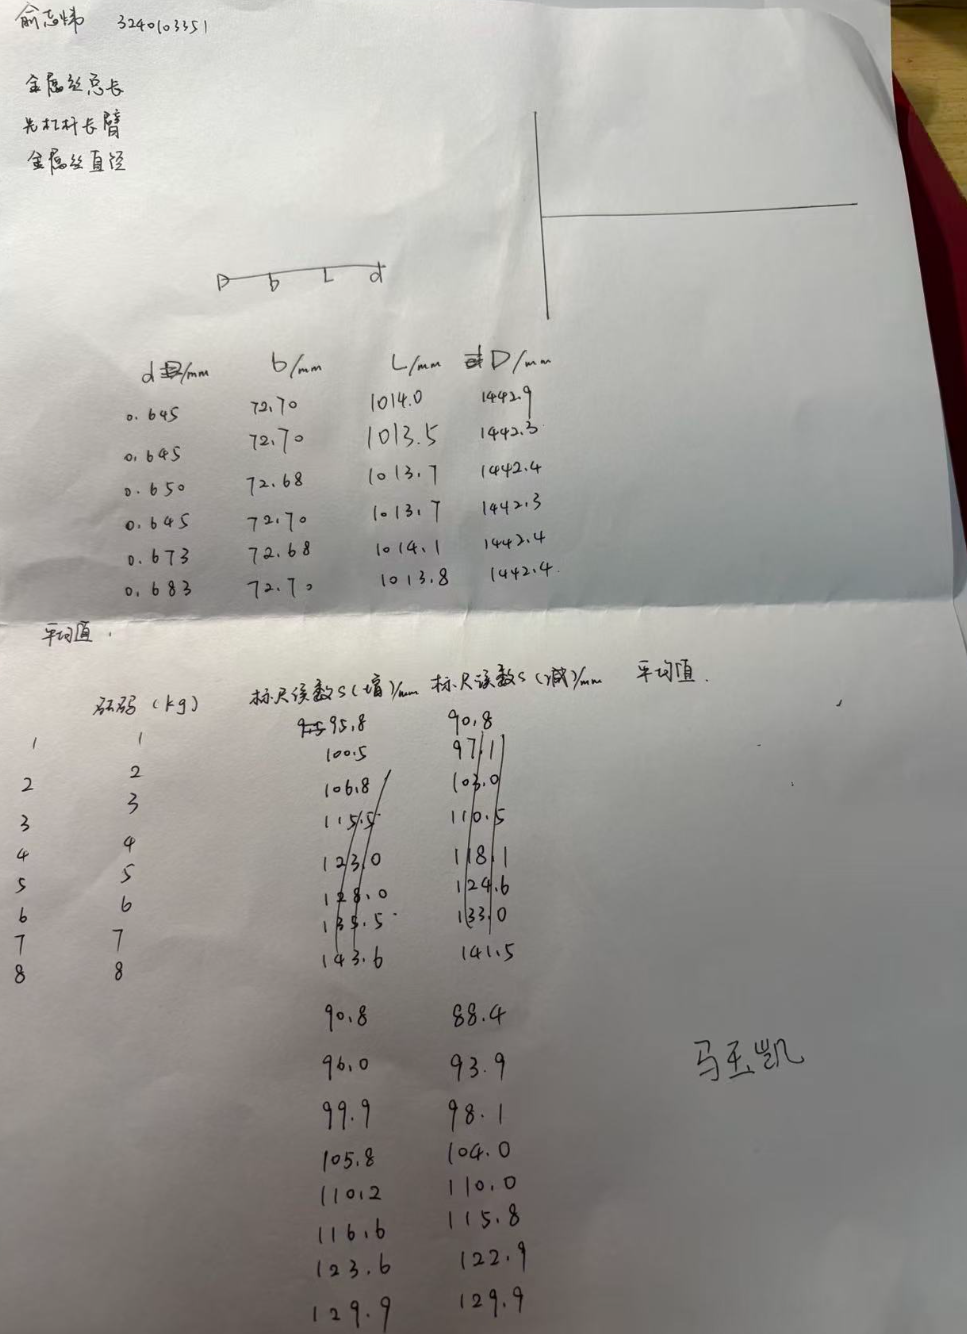 俞志炜 3240103351
金属丝总长
光杠杆长臂
金属丝直径
D b L d
d/mm b/mm L/mm D/mm
0.645 72.70 1014.0 1442.9
0.645 72.70 1013.5 1442.3
0.650 72.68 1013.7 1442.4
0.645 72.70 1013.7 1442.3
0.673 72.68 1014.1 1442.4
0.683 72.70 1013.8 1442.4
平均值
砝码(kg) 标尺读数S(增)/mm 标尺读数S(减)/mm 平均值
1 1 95.8 90.8
2 2 100.5 97.1
3 3 106.8 103.0
4 4 115.5 110.5
5 5 123.0 118.1
6 6 128.0 124.6
7 7 135.5 133.0
8 8 143.6 141.5
90.8 88.4
96.0 93.9
99.9 98.1
105.8 104.0
110.2 110.0
116.6 115.8
123.6 122.9
129.9 129.9
马玉凯